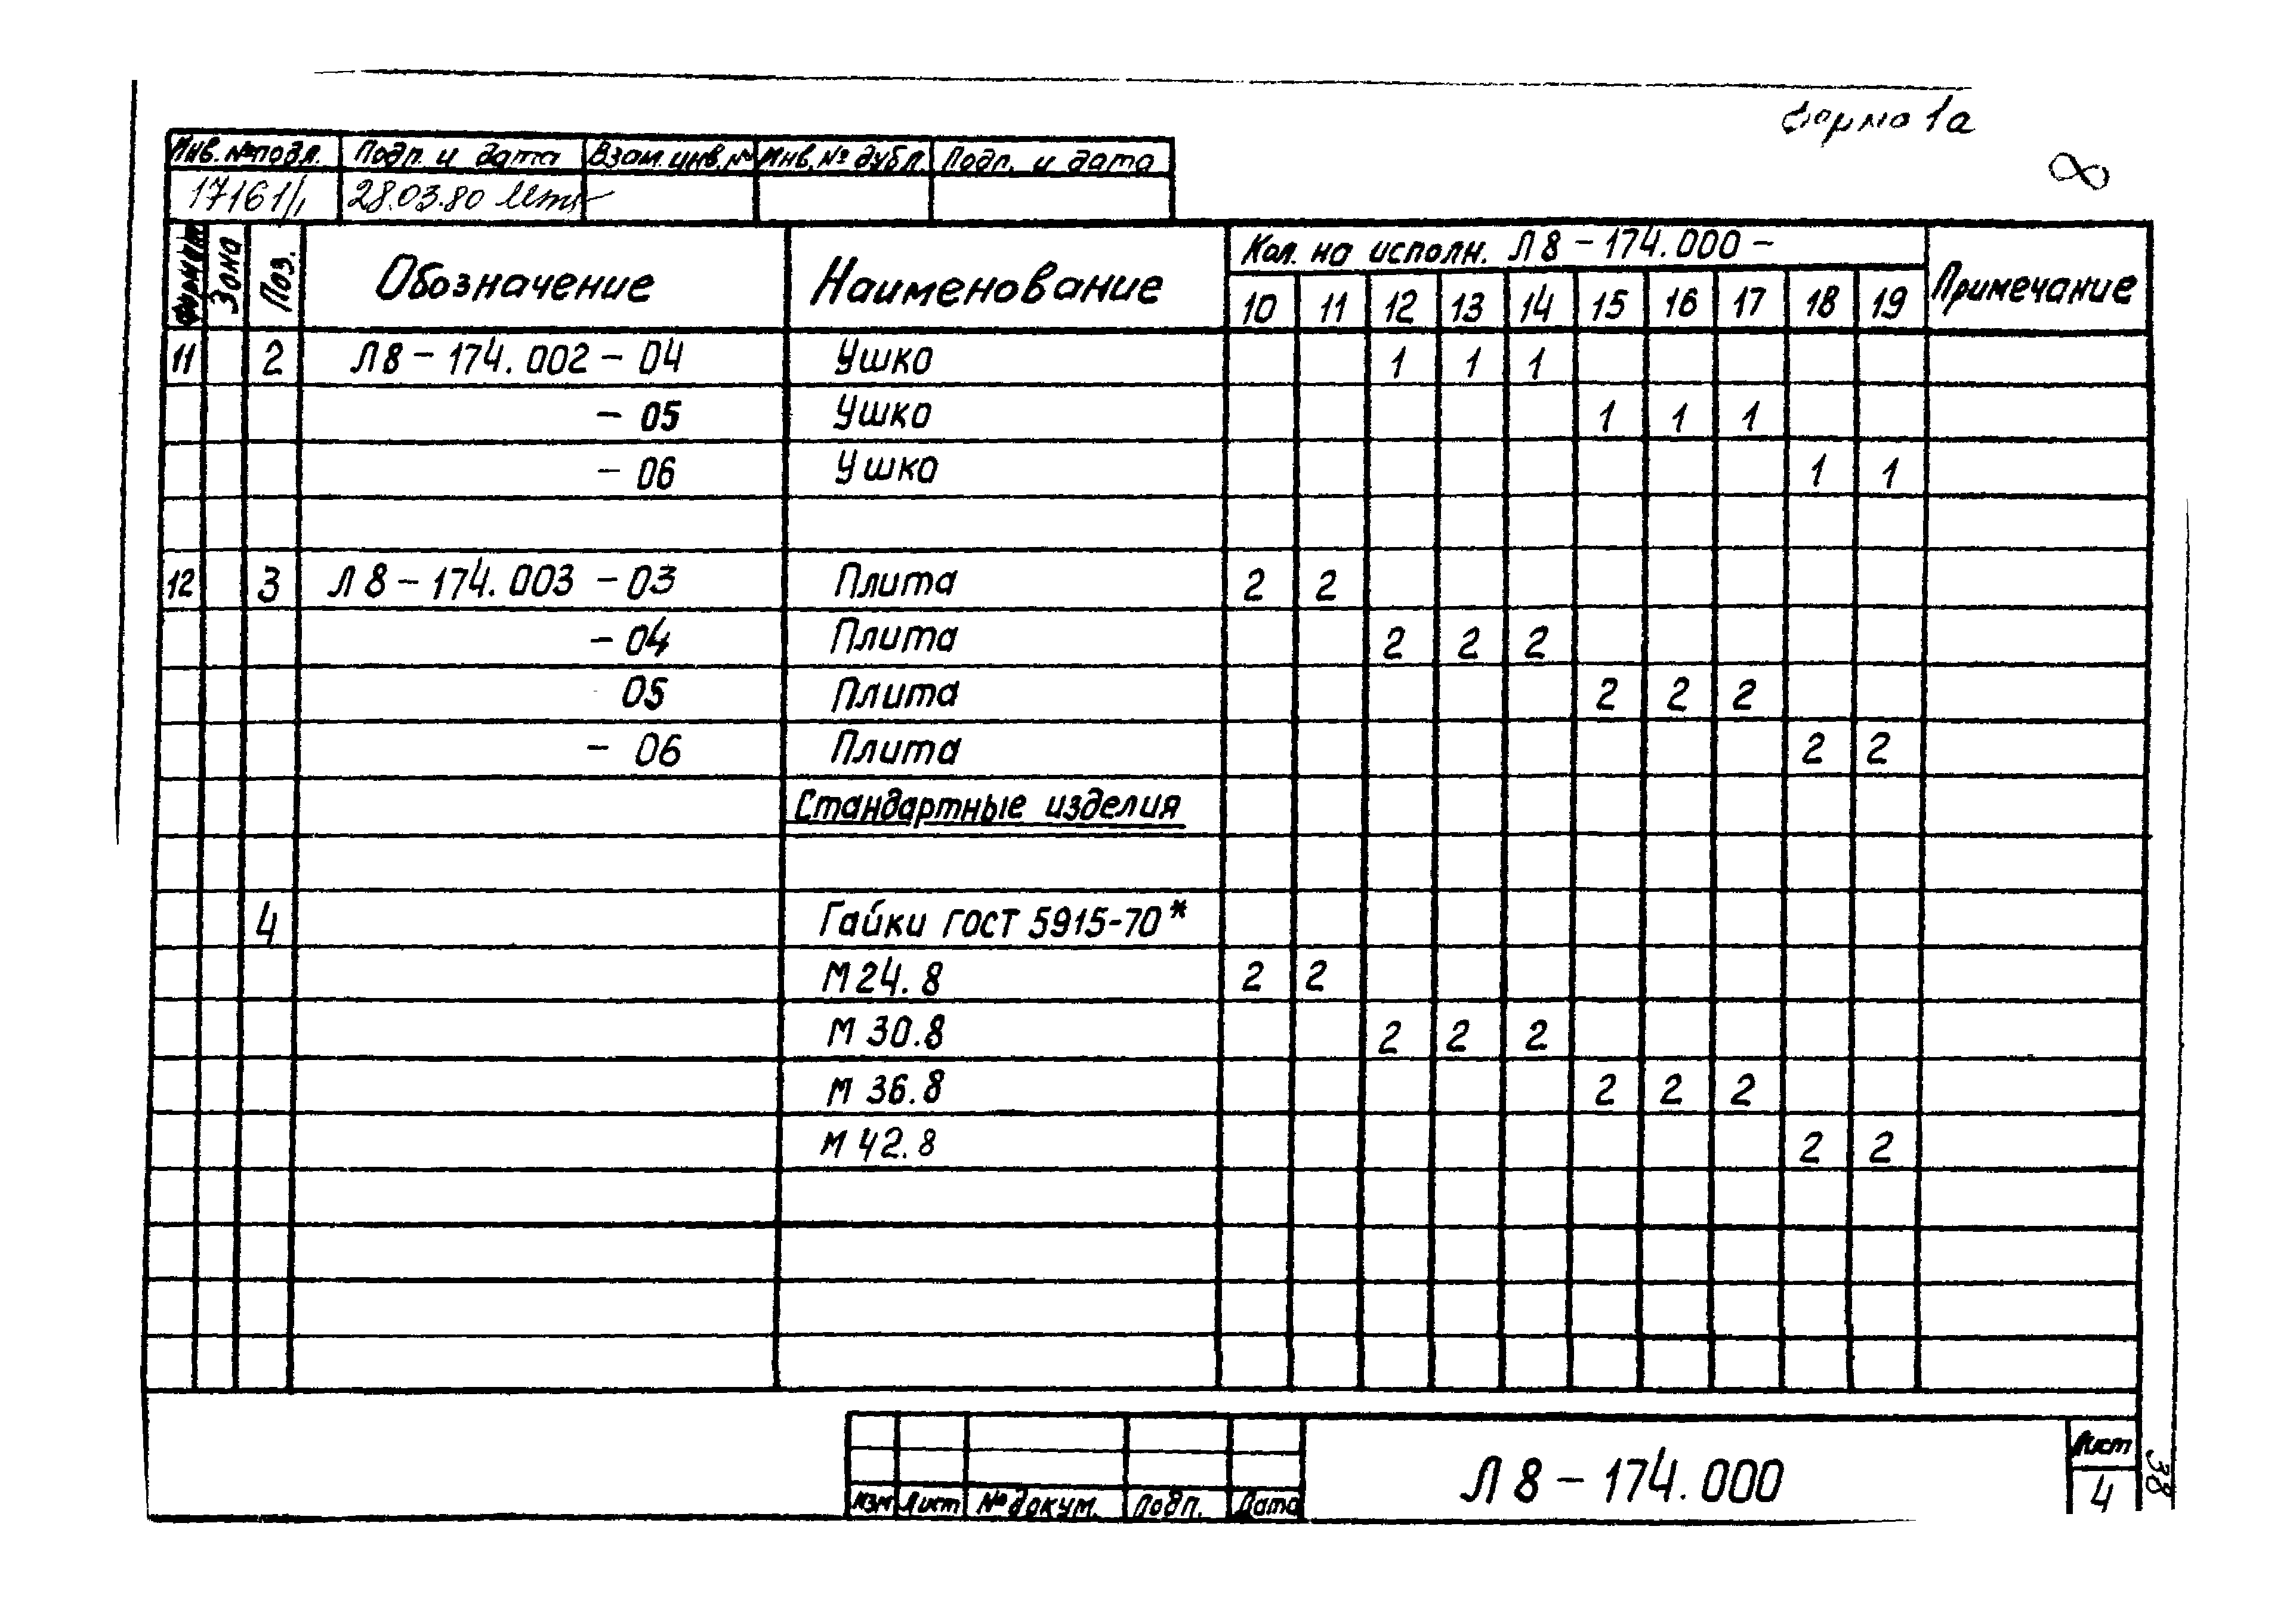 Форма 1а
8
Инв. № подл. Подп. и дата Взам. инв. № Инв. № дубл. Подп. и дата
17161/1 28.03.80
Формат Зона Поз. Обозначение Наименование Кол. на исполн. Л 8 – 174.000 – Примечание
10 11 12 13 14 15 16 17 18 19
11 2 Л 8 – 174.002 – 04 Ушко 1 1 1
– 05 Ушко 1 1 1
– 06 Ушко 1 1
12 3 Л 8 – 174.003 – 03 Плита 2 2
– 04 Плита 2 2 2
05 Плита 2 2 2
– 06 Плита 2 2
Стандартные изделия
4 Гайки ГОСТ 5915-70*
М 24.8 2 2
М 30.8 2 2 2
М 36.8 2 2 2
М 42.8 2 2
Изм Лист № докум. Подп. Дата
Л 8 – 174.000
Лист
4
38